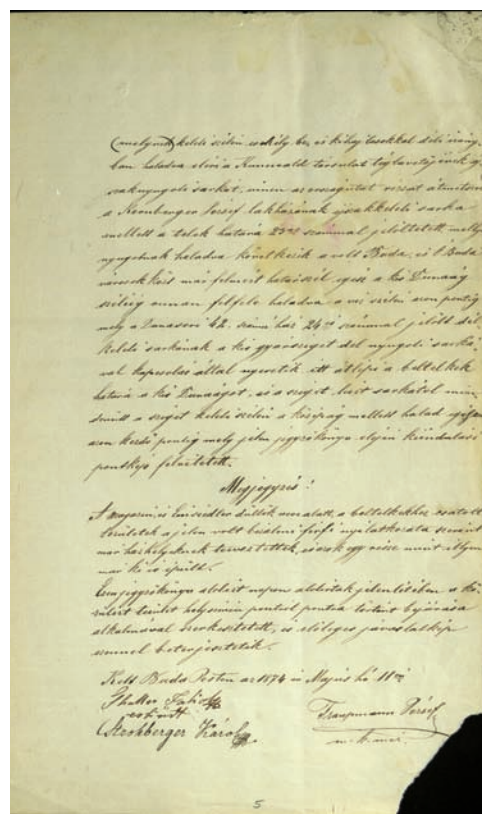 (melynek keleti szélén csekély be, és kihajlásokkal déli irány-
ban haladva eléri a Kunewald társulat téglavetőjének éj-
szaknyugoti sarkát, innen az országutat vissza átmetszve
a Kronberger József lakházának éjszakkeleti sarka
mellett a telek határa 23ik számmal jelöltetett, mely
nyugotnak haladva következik a volt Buda, és ó Buda
városok közt már felmért határszél, egész a kis Dunaág
széléig onnan felfelé haladva a víz szélén azon pontig
mely a 42. számú ház 24ik számmal jelölt dél
keleti sarkának a kis gyársziget dél nyugoti sarká-
val kapcsolás által nyeretik itt átlépi a beltelkek
határa a kis Dunaágot, és a sziget leírt sarkától
a sziget keleti szélén a középág mellett halad
azon kezdő pontig mely jelen jegyzőkönyv elején kiindulási
pontkép felvétetett.
Megjegyzés!
A és dűlők alatt, a beltelkekhez csatolt
területek a jelen volt bizalmi férfi nyilatkozata szerint
már házhelyeknek terveztettek, és azok egy része mint illyen
már ki is épült.
Ezen jegyzőkönyv alólírt napon alólírtak jelenlétében a kö-
rülírt terület helyszínén pontról pontra történt bejárása
alkalmával szerkesztetett, és előleges jóváslatkép
ezennel beterjesztetik.
Kelt Buda Pesten az 1874 év Május hó 11én
Strohberger Károly
Traupmann József
mérnök
5